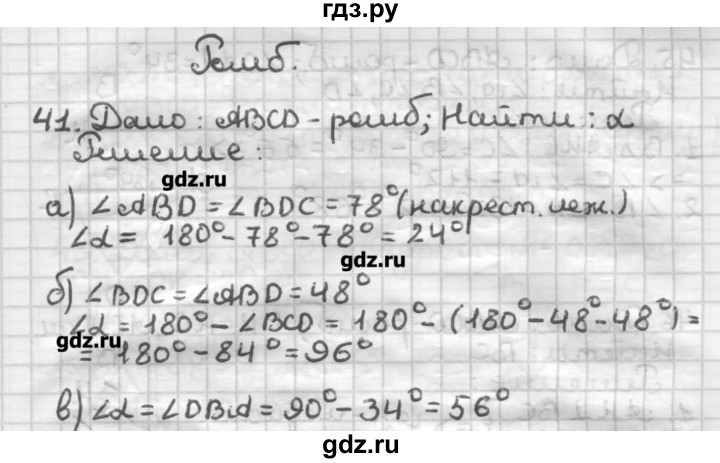 гдз.ру
Ромб.
41. Дано: ABCD - ромб; Найти: α
Решение:
gdz.ru
а) ∠ABD = ∠BDC = 78° (накрест. леж.)
∠α = 180° - 78° - 78° = 24°
gdz.ru
б) ∠BDC = ∠ABD = 48°
∠α = 180° - ∠BCD = 180° - (180° - 48° - 48°) =
gdz.ru
= 180° - 84° = 96°
в) ∠α = ∠DBA = 90° - 34° = 56°
gdz.ru